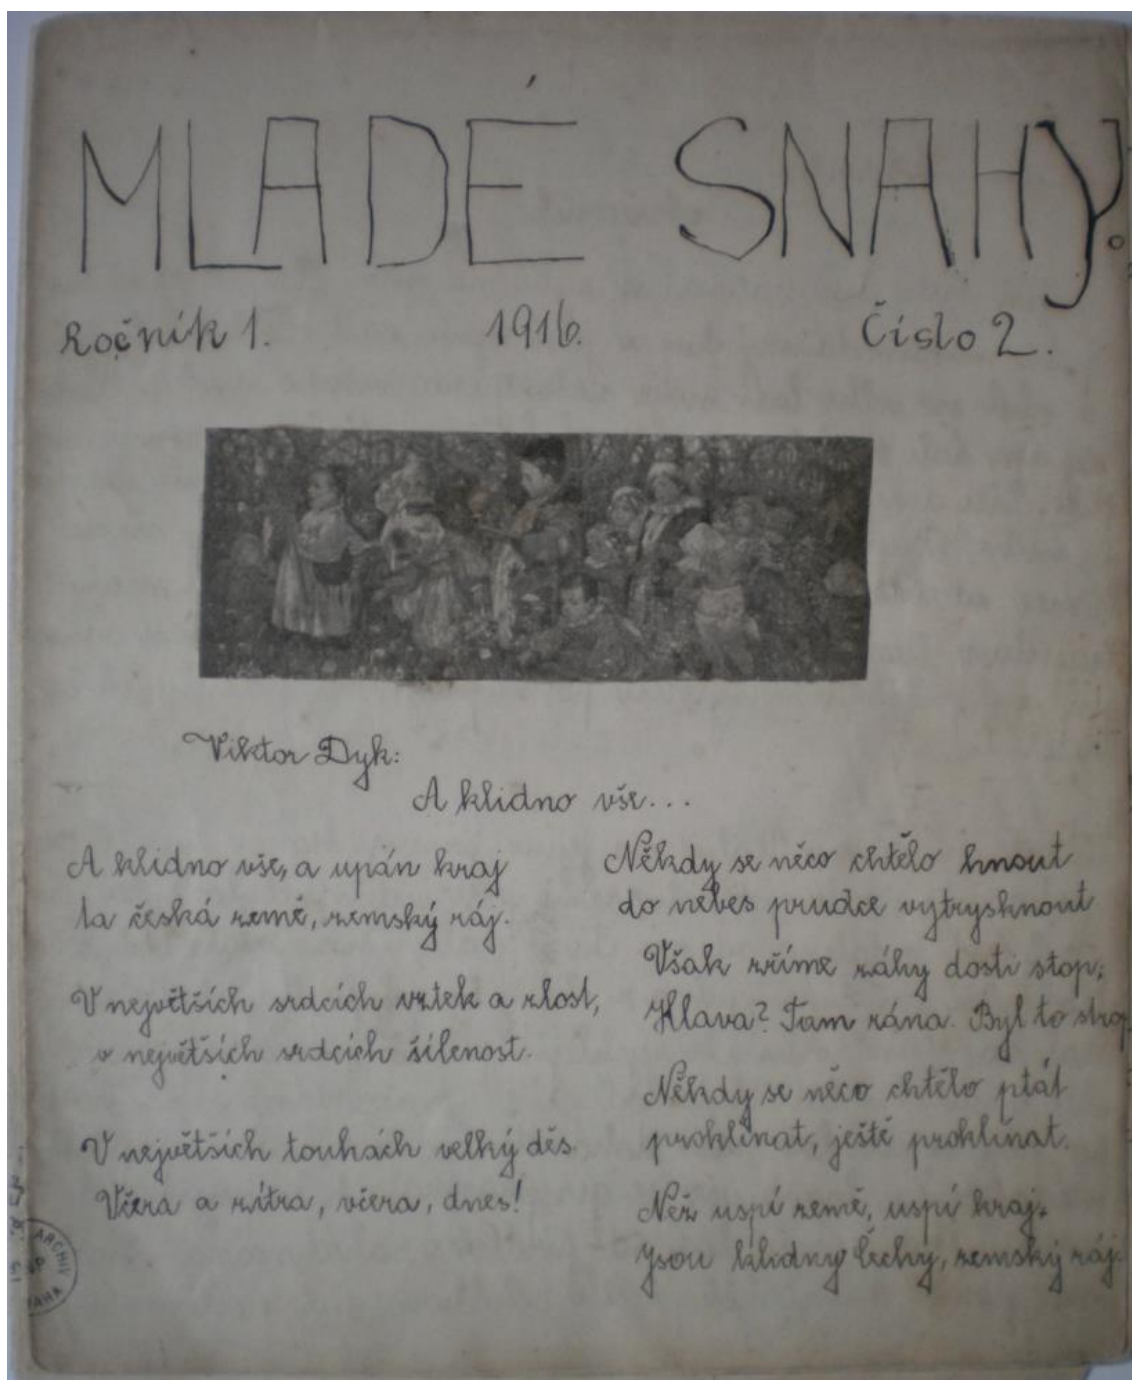 MLADÉ SNAHY.
Ročník 1.
1916.
Číslo 2.
Viktor Dyk:
A klidno vše...
A klidno vše, a upán kraj
ta česká země, zemský ráj.
V největších srdcích vztek a zlost,
v největších srdcích šílenost.
V největších touhách velký děs
Včera a zítra, včera, dnes!
Někdy se něco chtělo hnout
do nebes prudce vytrysknout
Však zříme záhy dosti stop,
Hlava? Tam rána. Byl to strop
Někdy se něco chtělo ptát
proklínat, ještě proklínat.
Než uspí země, uspí kraj,
Jsou klidny Čechy, zemský ráj.
ARCHIV